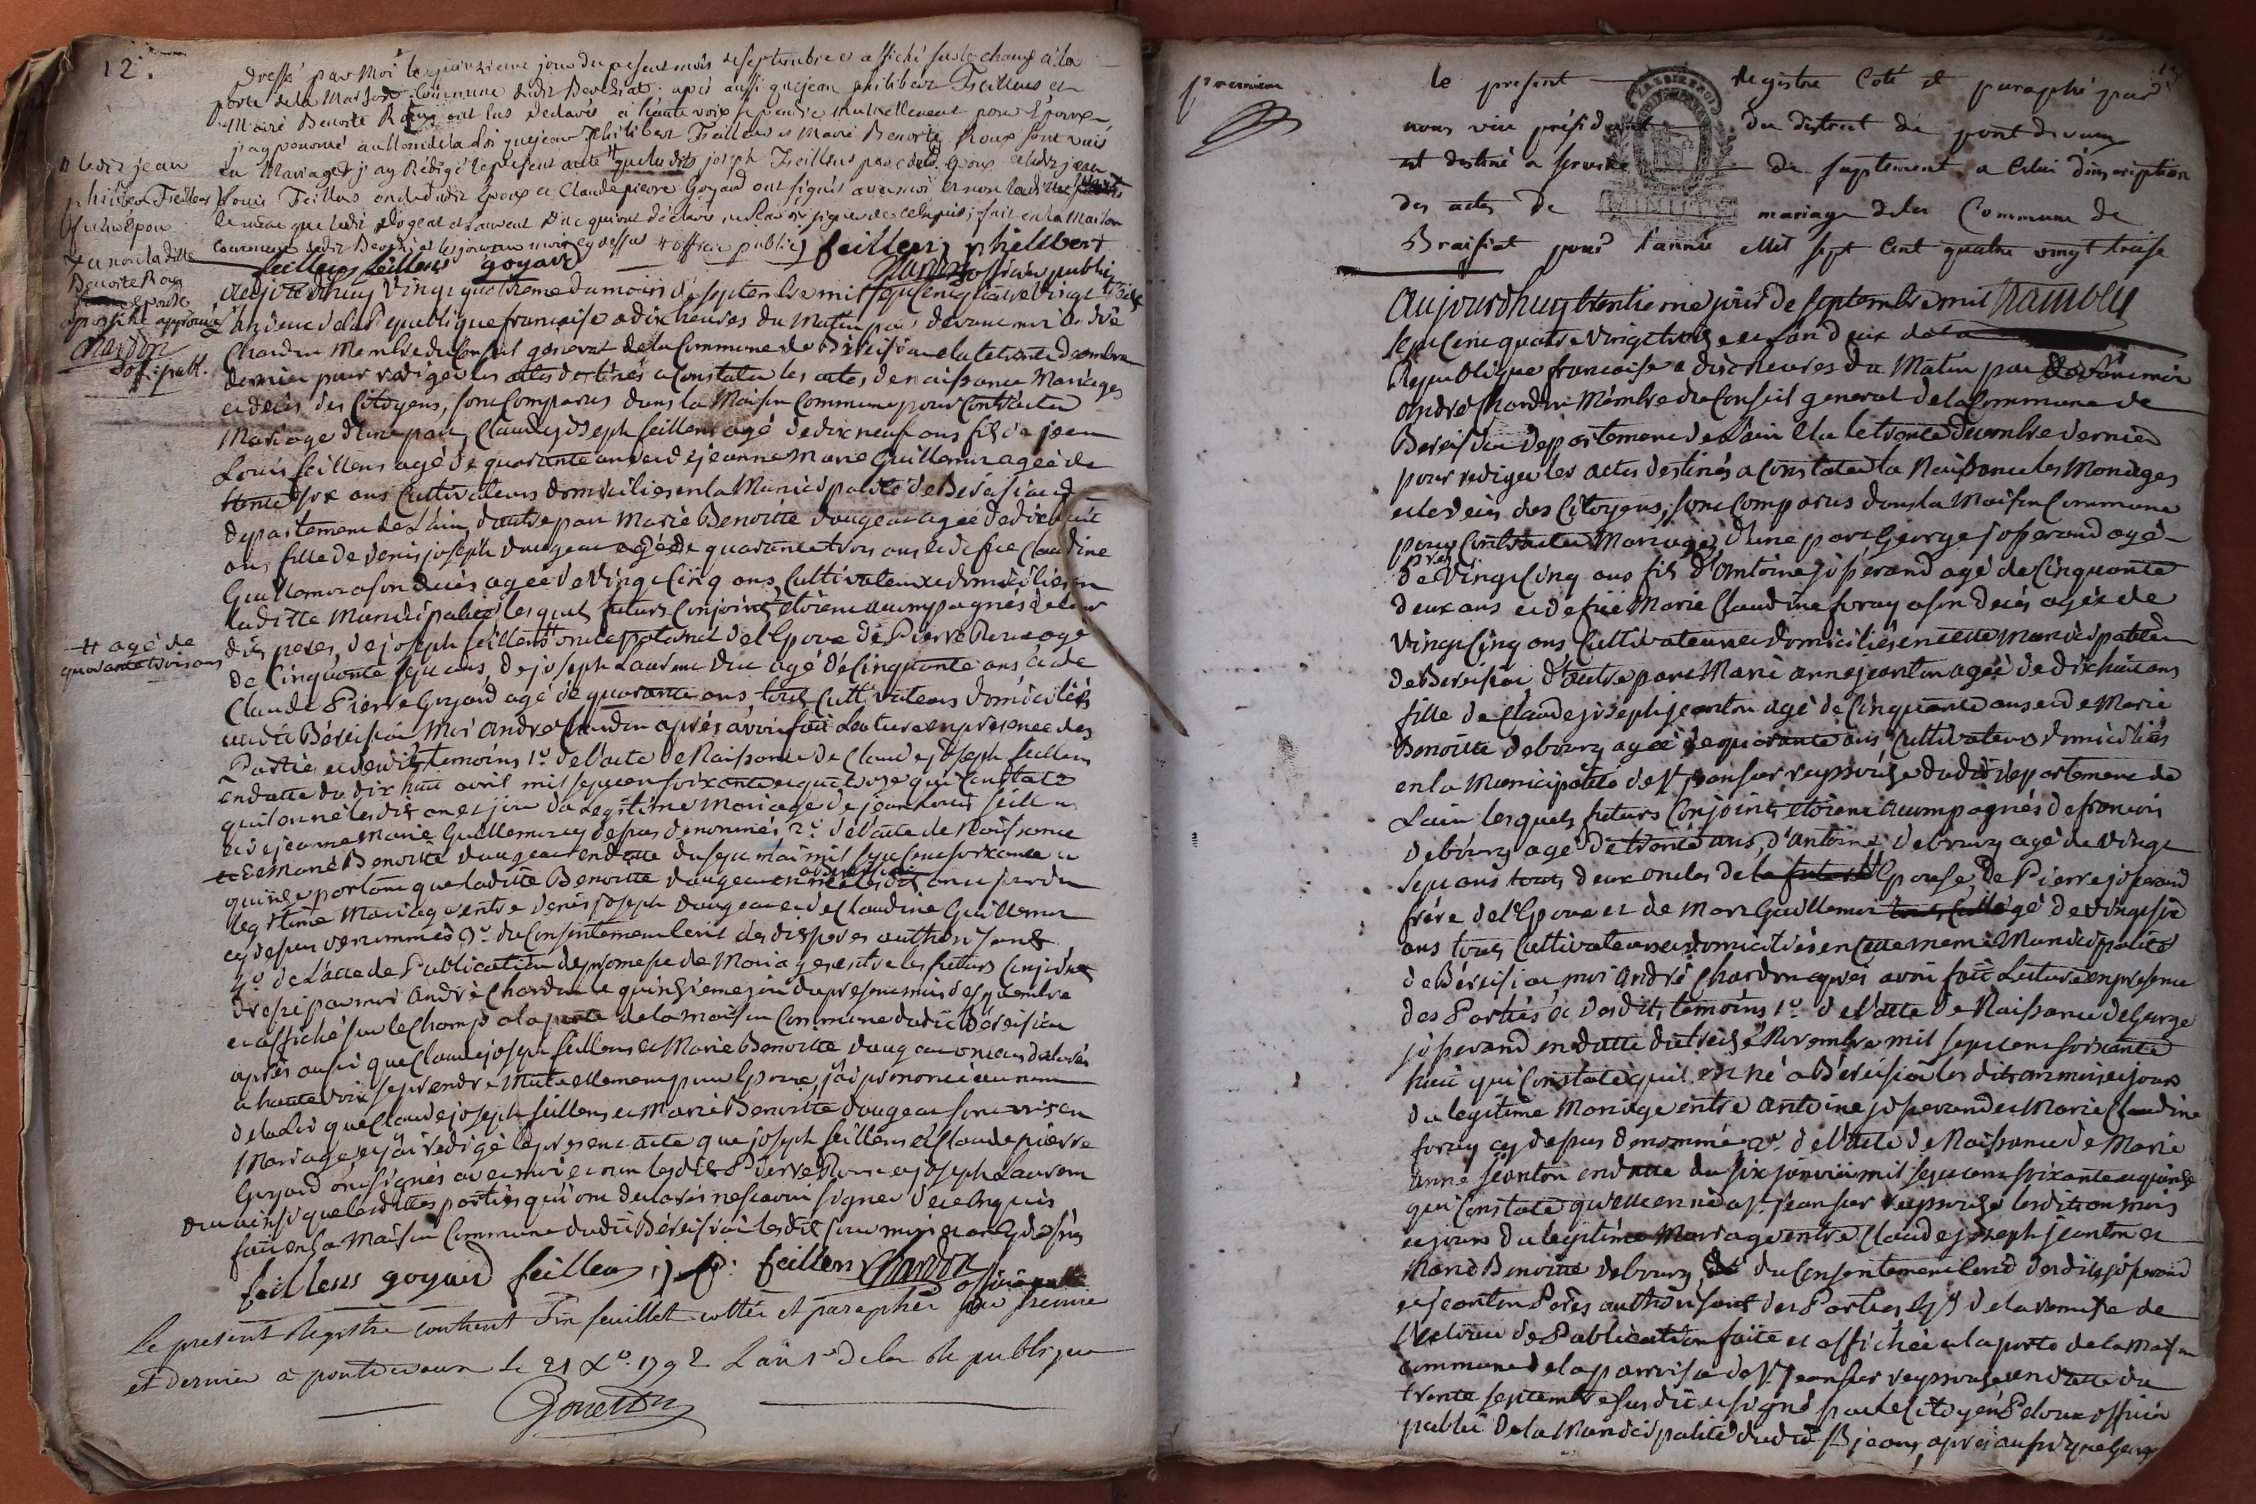 12.
dressé par Moi le quinzieme jour du present mois de septembre et affiché sur le champ à la
porte de la Maison Commune dudit Bereisiat. après aussi que jean philibert Feillens et
Marie Benoite Roux ont eus declarés à haute voix se prendre mutuellement pour Epoux
j'ay prononcé au Nom de la Loi que jean Philibert Feillens et Marie Benoite Roux sont unis
en Mariage et j'ay Rédigé le present acte que lesdits joseph Feillens pere dudit Epoux et ledit jean
Louis Feillens oncle dudit Epoux et Claude pierre Goyard ont signés avec moi et non ladite
de même que ledit et Laurent Duc qui ont déclarés ne savoir signer de ce enquis; fait en la Maison
Commune dudit Bereisiat les jour mois et an cy dessus officier public feillens philibert
feillens feillens goyard Chardon officier public
ledit jean
philibert Feillens
futur Epoux
et non ladite
Benoite Roux
Epouse
apostille approuvée
Chardon
off. publ.
Aujourd'huy vingt quatrieme du mois de septembre mil sept cent quatre vingt treize
an deux de la Republique francaise a dix heures du Matin par devant moi André
Chardon Membre du Conseil general de la Commune de Bereisia elu le trente decembre
dernier pour rediger les actes destinés a Constater les actes de naissance Mariages
et decès des Citoyens, sont Comparus dans la Maison Commune pour Contracter
Mariage d'une part Claude joseph feillens agé de dix neuf ans fils de jean
Louis feillens agé de quarante ans et de jeanne Marie Guillemin agée de
trente six ans Cultivateurs domiciliés en la Municipalité de Bereisiat
departement de L'ain, d'autre part Marie Benoitte dougeat agée de dix huit
ans fille de denis joseph dougeat agé de quarante trois ans et de feue Claudine
Guillemin a son decès agée de Vingt Cinq ans, Cultivateurs domiciliés en
ladite Municipalité, lesquels futurs Conjoints etoient accompagnés de leur
dits peres, de joseph feillens oncle paternel de l'Epoux de Pierre Roux agé
# agé de
quarante trois ans
de Cinquante sept ans, de joseph Laurent Duc agé de Cinquante ans et de
Claude Pierre Goyard agé de quarante ans tous Cultivateurs domiciliés
audit Bereisia, Moi André Chardon après avoir fait Lecture en presence des
Parties et desdits temoins 1.º de l'acte de Naissance de Claude joseph feillens
en datte du dix huit avril mil sept cent soixante et quatorze qui Constate
qu'il est né lesdits an et jour du Legitime Mariage de jean Louis feillens
et de jeanne Marie Guillemin cy dessus denommés 2.º de l'acte de Naissance
de Marie Benoitte dougeat en datte du sept mai mil sept cent soixante et
quinze portant que ladite Benoitte dougeat est née a Bereisia lesdits an et jour du
legitime Mariage entre denis joseph dougeat et de Claudine Guillemin
cy dessus denommés 3.º du Consentement Verbal des dits peres authorisant
4.º de l'acte de Publication de promesse de Mariage entre les futurs Conjoints
dressé par moi André Chardon le quinzieme jour du present mois de septembre
et affiché sur le Champ a la porte de la maison Commune dudit Bereisiat
après aussi que Claude joseph feillens et Marie Benoitte dougeat ont eus declarés
a haute voix se prendre Mutuellement pour Epoux, j'ai prononcé au nom
de la Loi que Claude joseph feillens et Marie Benoitte dougeat sont unis en
Mariage et j'ai redigé le present acte que joseph feillens et Claude pierre
Goyard ont signés avec moi et non lesdits Pierre Roux et joseph Laurent
Duc ainsi que lesdittes parties qui ont declarés ne scavoir signer de ce enquis
fait en la Maison Commune dudit Bereisia lesdits jour mois et an cy dessus
feillens goyard feillens j. p. feillens Chardon
officier public
Le present Registre contient Six feuillets cottés et paraphés par premier
et dernier a pontdevaux le 21 Xbre 1792 L'an 1er de la Republique
premier
le present registre Coté et paraphé par
nous vice président du district de pontdevaux
est destiné a servir de supplement a Celui d'inscription
des actes de mariage de la Commune de
Breisiat pour l'année Mil sept Cent quatre vingt treize
MINUTES
Aujourd'huy trentieme jour de septembre mil
sept Cent quatre Vingt treize et L'an deux de la
Republique francaise a dix heures du Matin par devant moi
André Chardon Membre du Conseil general de la Commune de
Bereisia departement de L'ain Elu le trente decembre dernier
pour rediger les actes destinés a Constater la Naissance les Mariages
et le decès des Citoyens, sont Comparus dans la Maison Commune
pour Contracter Mariage, d'une part George josserand agé
près
de Vingt Cinq ans fils d'Antoine josserand agé de Cinquante
deux ans et de feue Marie Claudine foray a son decès agée de
Vingt Cinq ans Cultivateurs domiciliés en cette Municipalité
de Bereisia, d'autre part Marie anne jeanton agée de dix huit ans
fille de Claude joseph jeanton agé de Cinquante ans et de Marie
Benoitte debourg agée de quarante ans, Cultivateurs domiciliés
en la Municipalité de St jean sur reyssouze dudit departement de
L'ain lesquels futurs Conjoints etoient accompagnés de francois
debourg agé de trente ans, d'Antoine debourg agé de Vingt
sept ans tous deux oncles de la future Epouse, de Pierre josserand
frère de l'Epoux et de Marc Guillemin agé de Vingt six
ans tous Cultivateurs domiciliés en Cette meme Municipalité
de Bereisia moi André Chardon après avoir fait Lecture en presence
des Parties et desdits temoins 1.º de l'acte de Naissance de George
josserand en datte du treize Novembre mil sept cent soixante
huit qui Constate qu'il est né a Bereisia lesdits an mois et jour
du legitime Mariage entre Antoine josserand et Marie Claudine
foray cy dessus denommés 2.º de l'acte de Naissance de Marie
anne jeanton en datte du six janvier mil sept cent soixante et quinze
qui Constate qu'elle est née a St jean sur reyssouze lesdits an mois
et jour du legitime Mariage entre Claude joseph jeanton et
Marie Benoitte debourg, du Consentement Verbal desdits josserand
et jeanton Pères authorisant des Parties de la remise de
l'extrait de Publication faite et affichée a la porte de la Maison
commune de la parroisse de St jean sur reyssouze en datte du
trente septembre susdit et signé par le Citoyen Peloux officier
public de la Municipalité dudit St jean, après aussi que George